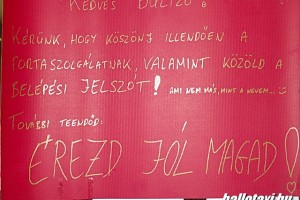 KEDVES BULIZÓ
KÉRÜNK, HOGY KÖSZÖNJ ILLENDŐEN A
PORTASZOLGÁLATNAK, VALAMINT KÖZÖLD A
BELÉPÉSI JELSZÓT! AMI NEM MÁS, MINT A NEVEM...
TOVÁBBI TEENDŐD:
ÉREZD JÓL MAGAD!